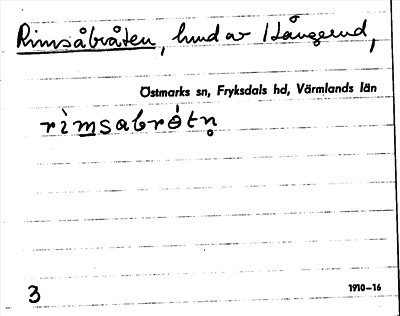 Rimsåbråten, hund av Hångerud,
Östmarks sn, Fryksdals hd, Värmlands län
rìmsabrótn̥
3
1910–16